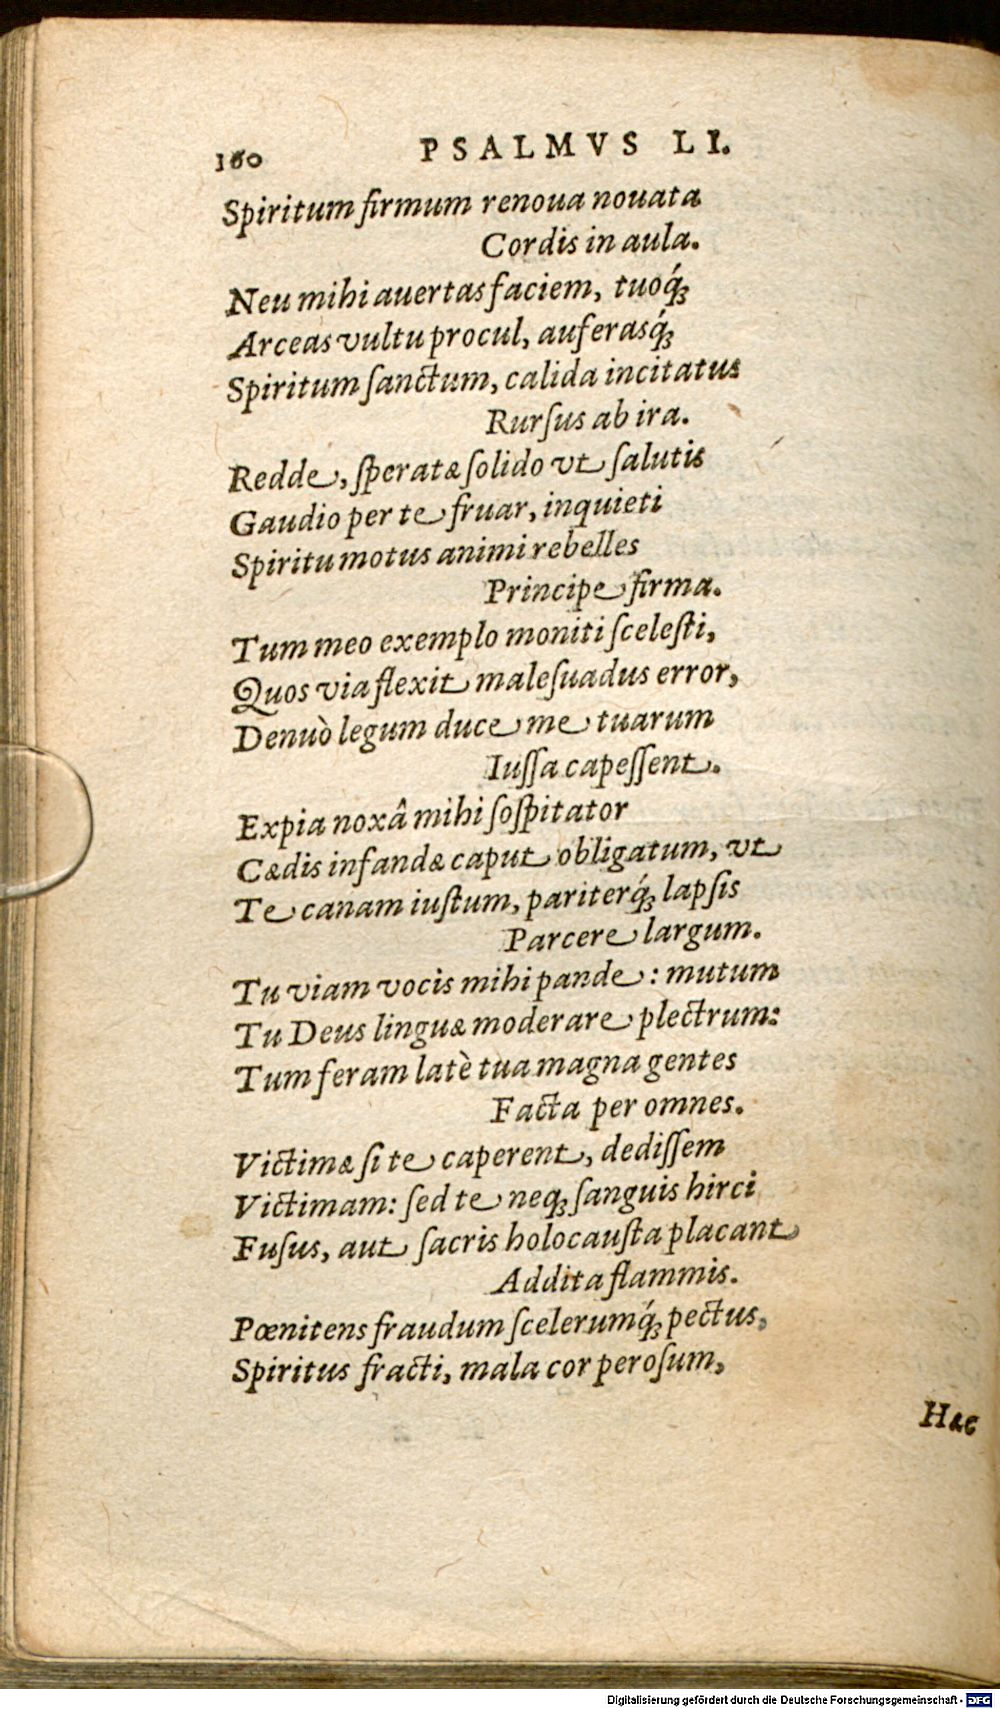 160 PSALMVS LI.
Spiritum firmum renoua nouata
Cordis in aula.
Neu mihi auertas faciem, tuoq́ꝫ
Arceas vultu procul, auferasq́ꝫ
Spiritum ſanctum, calida incitatus
Rurſus ab ira.
Redde, ſperatæ ſolido vt ſalutis
Gaudio per te fruar, inquieti
Spiritu motus animi rebelles
Principe firma.
Tum meo exemplo moniti ſceleſti,
Quos via flexit maleſuadus error,
Denuò legum duce me tuarum
Iuſſa capeſſent.
Expia noxâ mihi ſoſpitator
Cædis infandæ caput obligatum, vt
Te canam iuſtum, pariterq́ꝫ lapſis
Parcere largum.
Tu viam vocis mihi pande: mutum
Tu Deus linguæ moderare plectrum:
Tum feram latè tua magna gentes
Facta per omnes.
Victimæ ſi te caperent, dediſſem
Victimam: ſed te neqꝫ ſanguis hirci
Fuſus, aut ſacris holocauſta placant
Addita flammis.
Pœnitens fraudum ſcelerumq́ꝫ pectus,
Spiritus fracti, mala cor peroſum,
Hæc
Digitalisierung gefördert durch die Deutsche Forschungsgemeinschaft - DFG